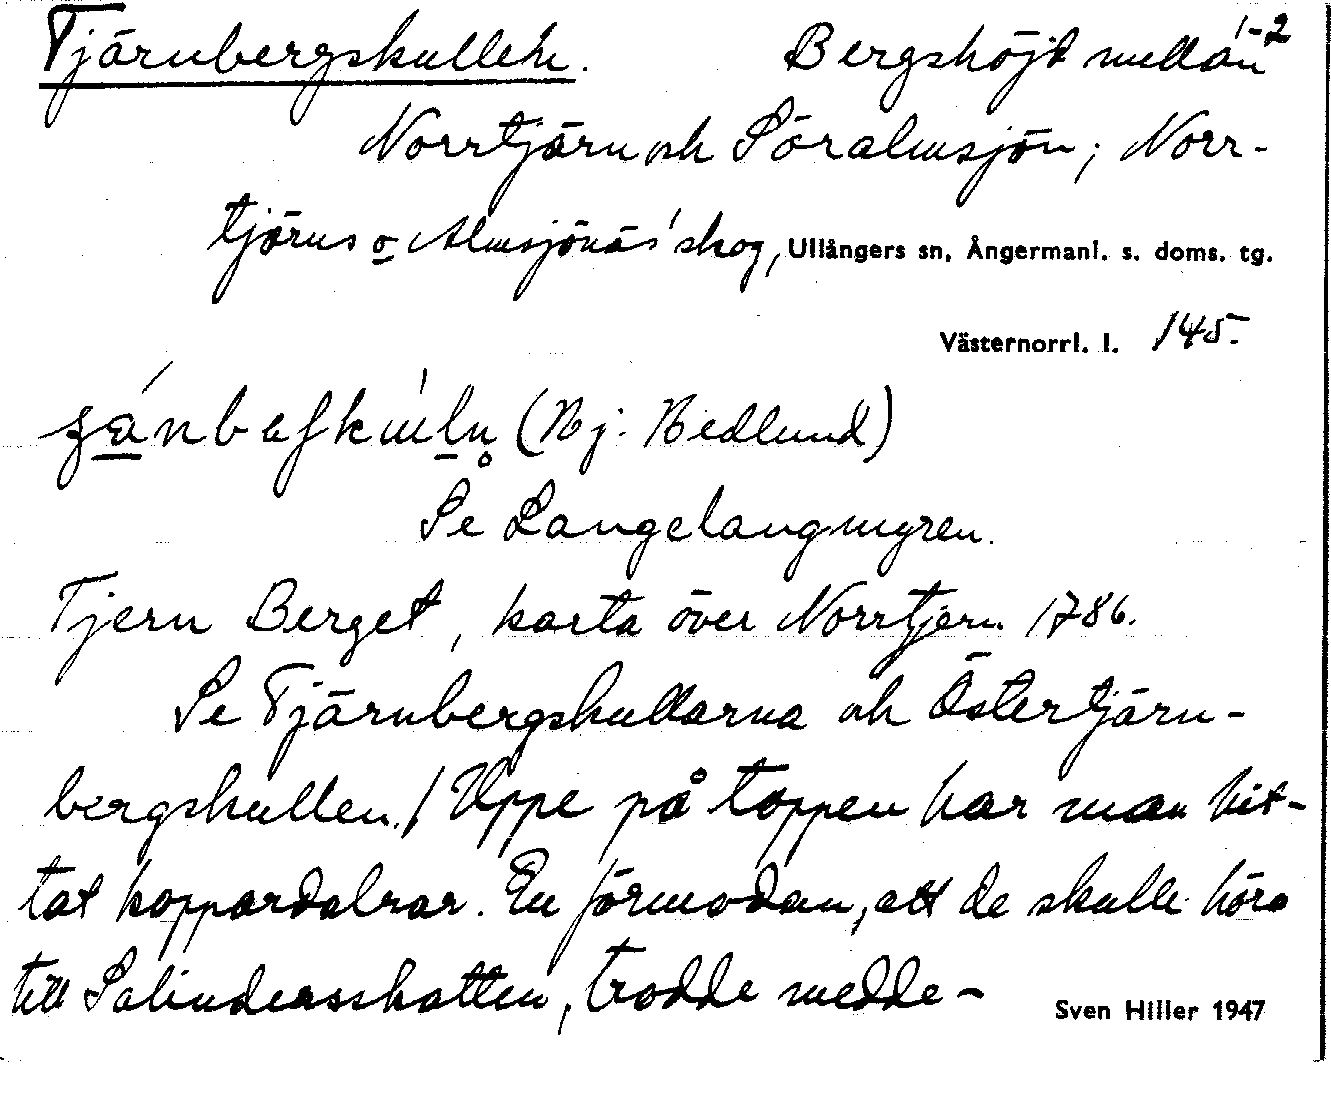 Tjärnbergskullen. Bergshöjd mellan 1-2
Norrtjärn och Söralmsjön; Norr-
tjärns o Almsjönäs' skog, Ullångers sn, Ångermanl. s. doms. tg.
Västernorrl. l. 145.
(Nj. Hedlund)
Se Langelangmyren.
Tjern Berget, karta över Norrtjern 1786.
Se Tjärnbergskullarna och Östertjärn-
bergskullen./ Uppe på toppen har man hit-
tat koppardalrar. En förmodan, att de skulle höra
till Salindersskatten, trodde medde-
Sven Hiller 1947